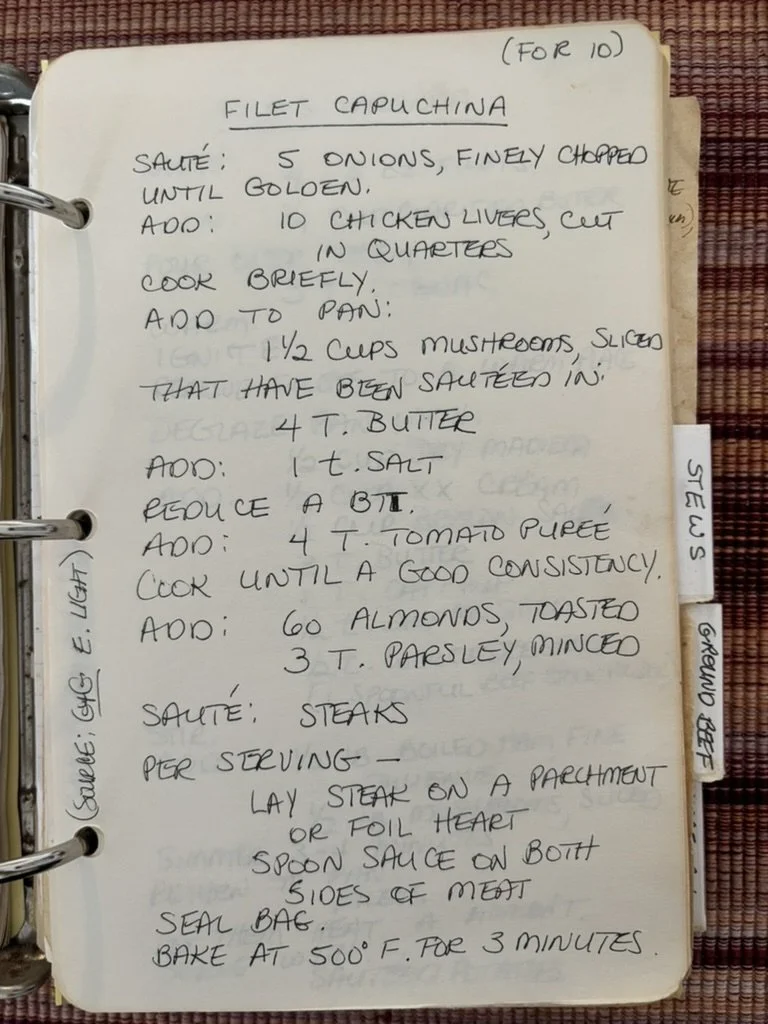 (FOR 10)
FILET CAPUCHINA
SAUTÉ: 5 ONIONS, FINELY CHOPPED
UNTIL GOLDEN.
ADD: 10 CHICKEN LIVERS, CUT
IN QUARTERS
COOK BRIEFLY.
ADD TO PAN:
1 1/2 CUPS MUSHROOMS, SLICED
THAT HAVE BEEN SAUTÉED IN:
4 T. BUTTER
ADD: 1 t. SALT
REDUCE A BIT.
ADD: 4 T. TOMATO PUREÉ
COOK UNTIL A GOOD CONSISTENCY.
ADD: 60 ALMONDS, TOASTED
3 T. PARSLEY, MINCED
SAUTÉ: STEAKS
PER SERVING —
LAY STEAK ON A PARCHMENT
OR FOIL HEART
SPOON SAUCE ON BOTH
SIDES OF MEAT
SEAL BAG.
BAKE AT 500° F. FOR 3 MINUTES.
(SOURCE: E. LIGHT)
STEWS
GROUND BEEF